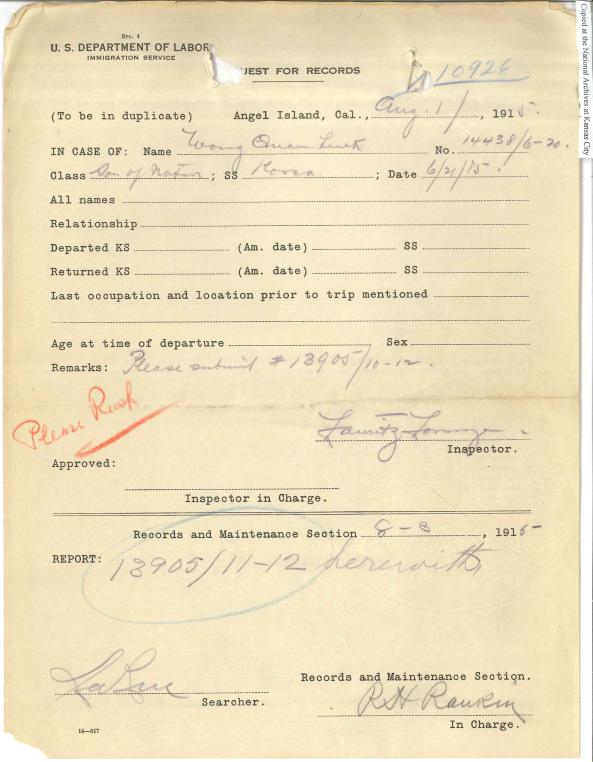 Sec. 4
U. S. DEPARTMENT OF LABOR
IMMIGRATION SERVICE
UEST FOR RECORDS
10926
(To be in duplicate) Angel Island, Cal., Aug. 1 , 1915.
IN CASE OF: Name Wong Quan Luck No. 14438/6-20.
Class Son of Native ; SS Korea ; Date 6/21/15.
All names
Relationship
Departed KS (Am. date) SS
Returned KS (Am. date) SS
Last occupation and location prior to trip mentioned
Age at time of departure Sex
Remarks: Please submit #13905/10-12.
Please Rush
Inspector.
Approved:
Inspector in Charge.
Records and Maintenance Section 8-3 , 1915
REPORT: 13905/11-12 herewith
Records and Maintenance Section.
LaRue
Searcher.
RH Rankin
In Charge.
14-517
Copied at the National Archives at Kansas City